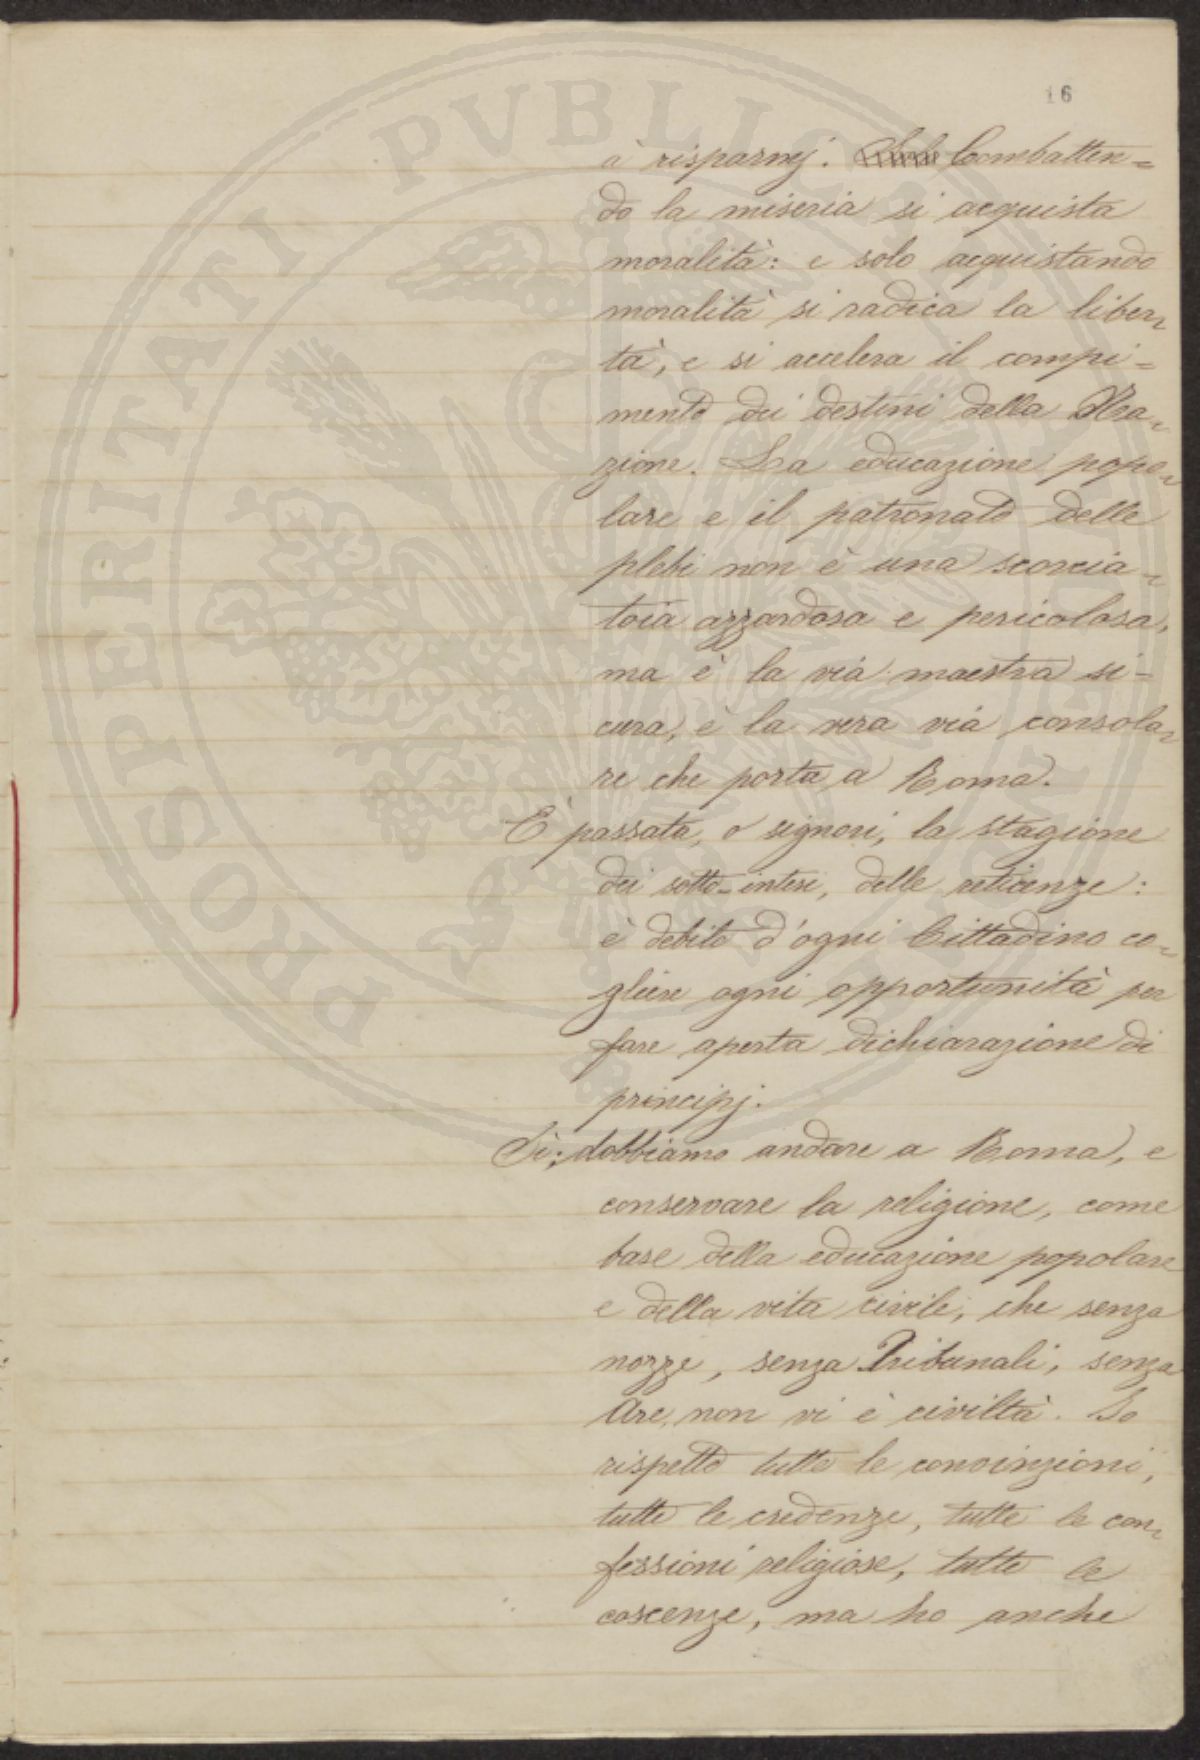 16
ai risparmj. Solo Combatten=
do la miseria si acquista
moralità: e solo acquistando
moralità si radica la liber-
tà, e si accelera il compi=
mento dei destini della Na-
zione. La educazione popo-
lare e il patronato delle
plebi non è una scorcia-
toia azzardosa e pericolosa,
ma è la via maestra si-
cura, è la vera via consola-
re che porta a Roma.
È passata, o signori, la stagione
dei sotto-intesi, delle reticenze:
è debito d'ogni Cittadino co-
gliere ogni opportunità per
fare aperta dichiarazione di
principj.
Sì; dobbiamo andare a Roma, e
conservare la religione, come
base della educazione popolare
e della vita civile; che senza
nozze, senza Tribunali, senza
Are, non vi è civiltà. Io
rispetto tutte le convinzioni,
tutte le credenze, tutte le con-
fessioni religiose, tutte le
coscenze, ma ho anche
PROSPERITATI PVBLICAE